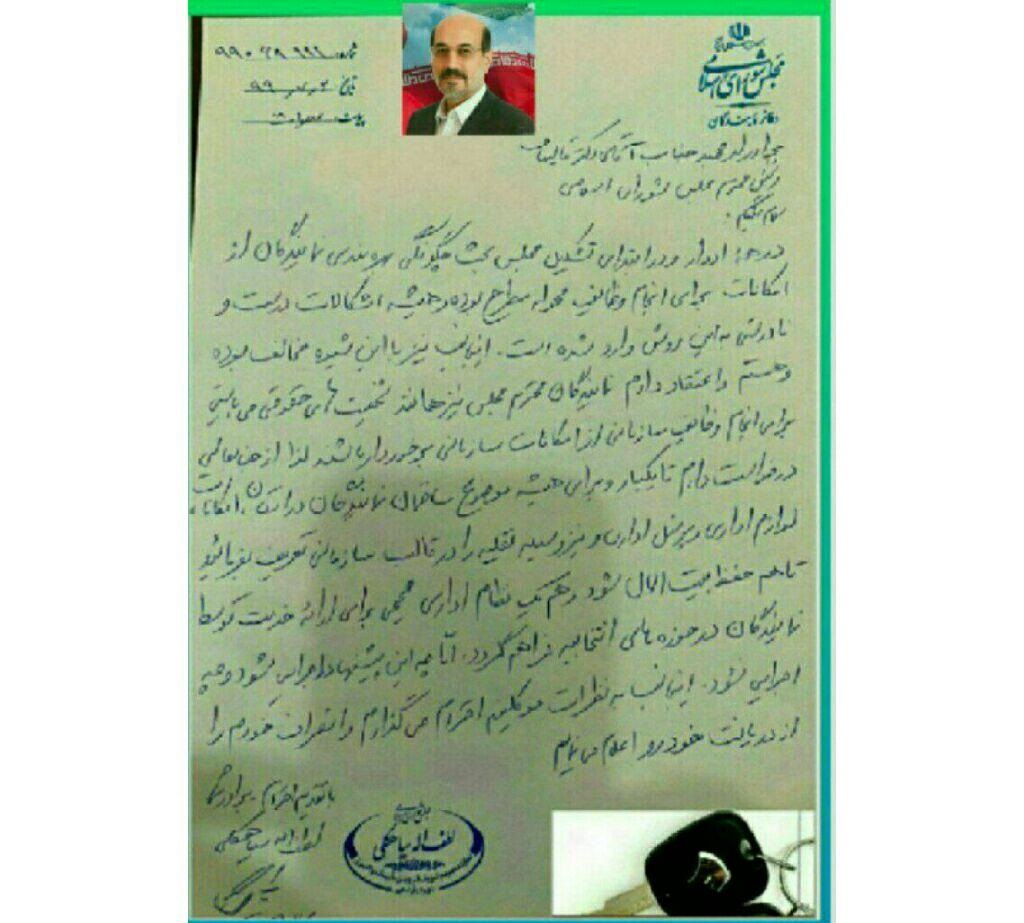 مجلس شورای اسلامی
دفاتر نمایندگان
شماره
تاریخ ۹۹،۷،۲
پیوست
برادر ارجمند جناب آقای دکتر قالیباف
رئیس محترم مجلس شورای اسلامی
سلام علیکم
در همه ادوار و در ابتدای تشکیل مجلس بحث چگونگی بهره‌مندی نمایندگان از
امکانات برای انجام وظائف محوله مطرح بوده و همیشه اشکالات درست و
نادرستی به این روش وارد شده است. اینجانب نیز با این شیوه مخالف بوده
و هستم و اعتقاد دارم نمایندگان محترم مجلس نیز همانند شخصیت های حقوقی می بایستی
برای انجام وظایف سازمانی از امکانات سازمانی برخوردار باشند لذا از جنابعالی
درخواست دارم تا یکبار و برای همیشه موضوع ساختمان نمایندگان
لوازم اداری و پرسنل اداری و نیز وسیله نقلیه را در قالب سازمانی تعریف بفرمائید
تا هم حفظ بیت المال شود و هم یک نظام اداری صحیحی برای ارائه خدمت توسط
نمایندگان در حوزه های انتخابیه فراهم گردد. اما چه این پیشنهاد اجرایی شود و چه
اجرایی نشود. اینجانب به نظرات موکلین احترام می گذارم و انصراف خودم را
از دریافت خودرو اعلام می نمایم
با تقدیم احترام برادر شما
لطف اله سیاهکلی
لطف اله سیاهکلی